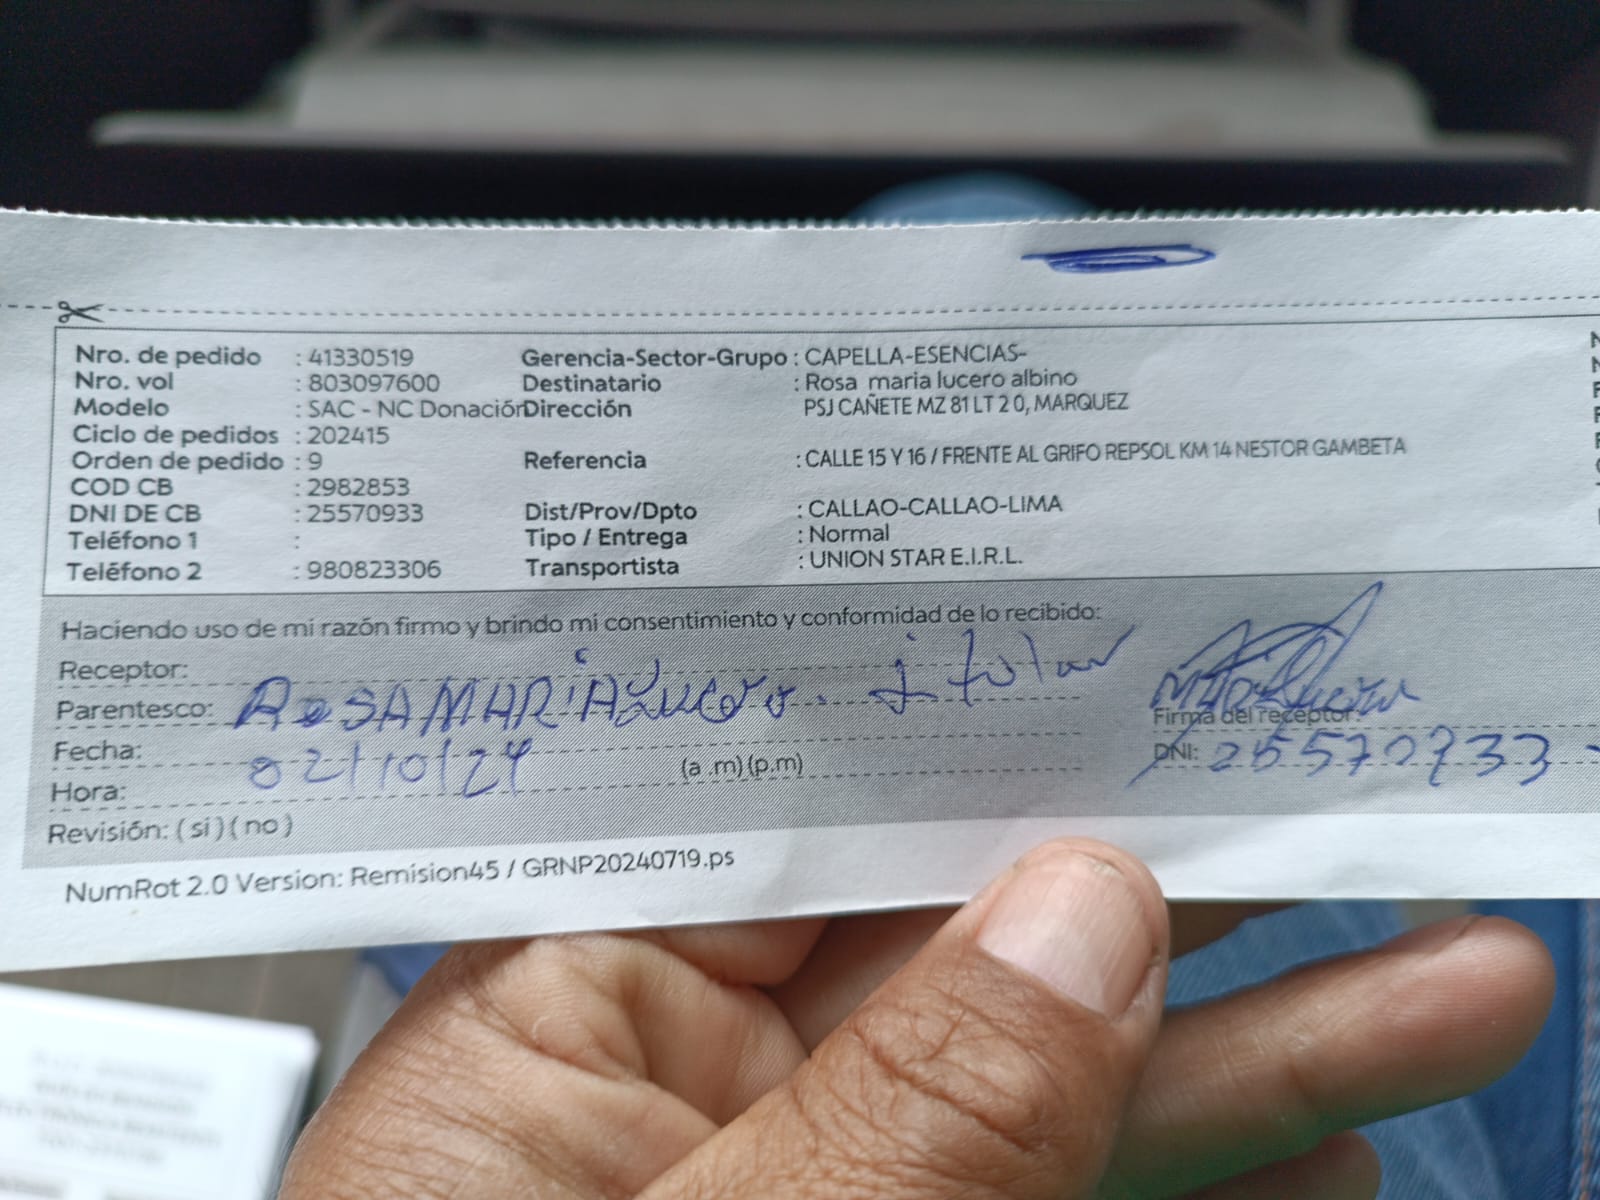 Nro. de pedido : 41330519 Gerencia-Sector-Grupo : CAPELLA-ESENCIAS-
Nro. vol : 803097600 Destinatario : Rosa maria lucero albino
Modelo : SAC - NC Donación Dirección PSJ CAÑETE MZ 81 LT 2 0, MARQUEZ
Ciclo de pedidos : 202415
Orden de pedido : 9 Referencia : CALLE 15 Y 16 / FRENTE AL GRIFO REPSOL KM 14 NESTOR GAMBETA
COD CB : 2982853
DNI DE CB : 25570933 Dist/Prov/Dpto : CALLAO-CALLAO-LIMA
Teléfono 1 : Tipo / Entrega : Normal
Teléfono 2 : 980823306 Transportista : UNION STAR E.I.R.L.
Haciendo uso de mi razón firmo y brindo mi consentimiento y conformidad de lo recibido:
Receptor:
Parentesco: ROSA MARiA Lucero. titular
Firma del receptor:
Fecha: 02/10/24 DNI: 25570933
Hora: (a .m) (p.m)
Revisión: ( si ) ( no )
NumRot 2.0 Version: Remision45 / GRNP20240719.ps